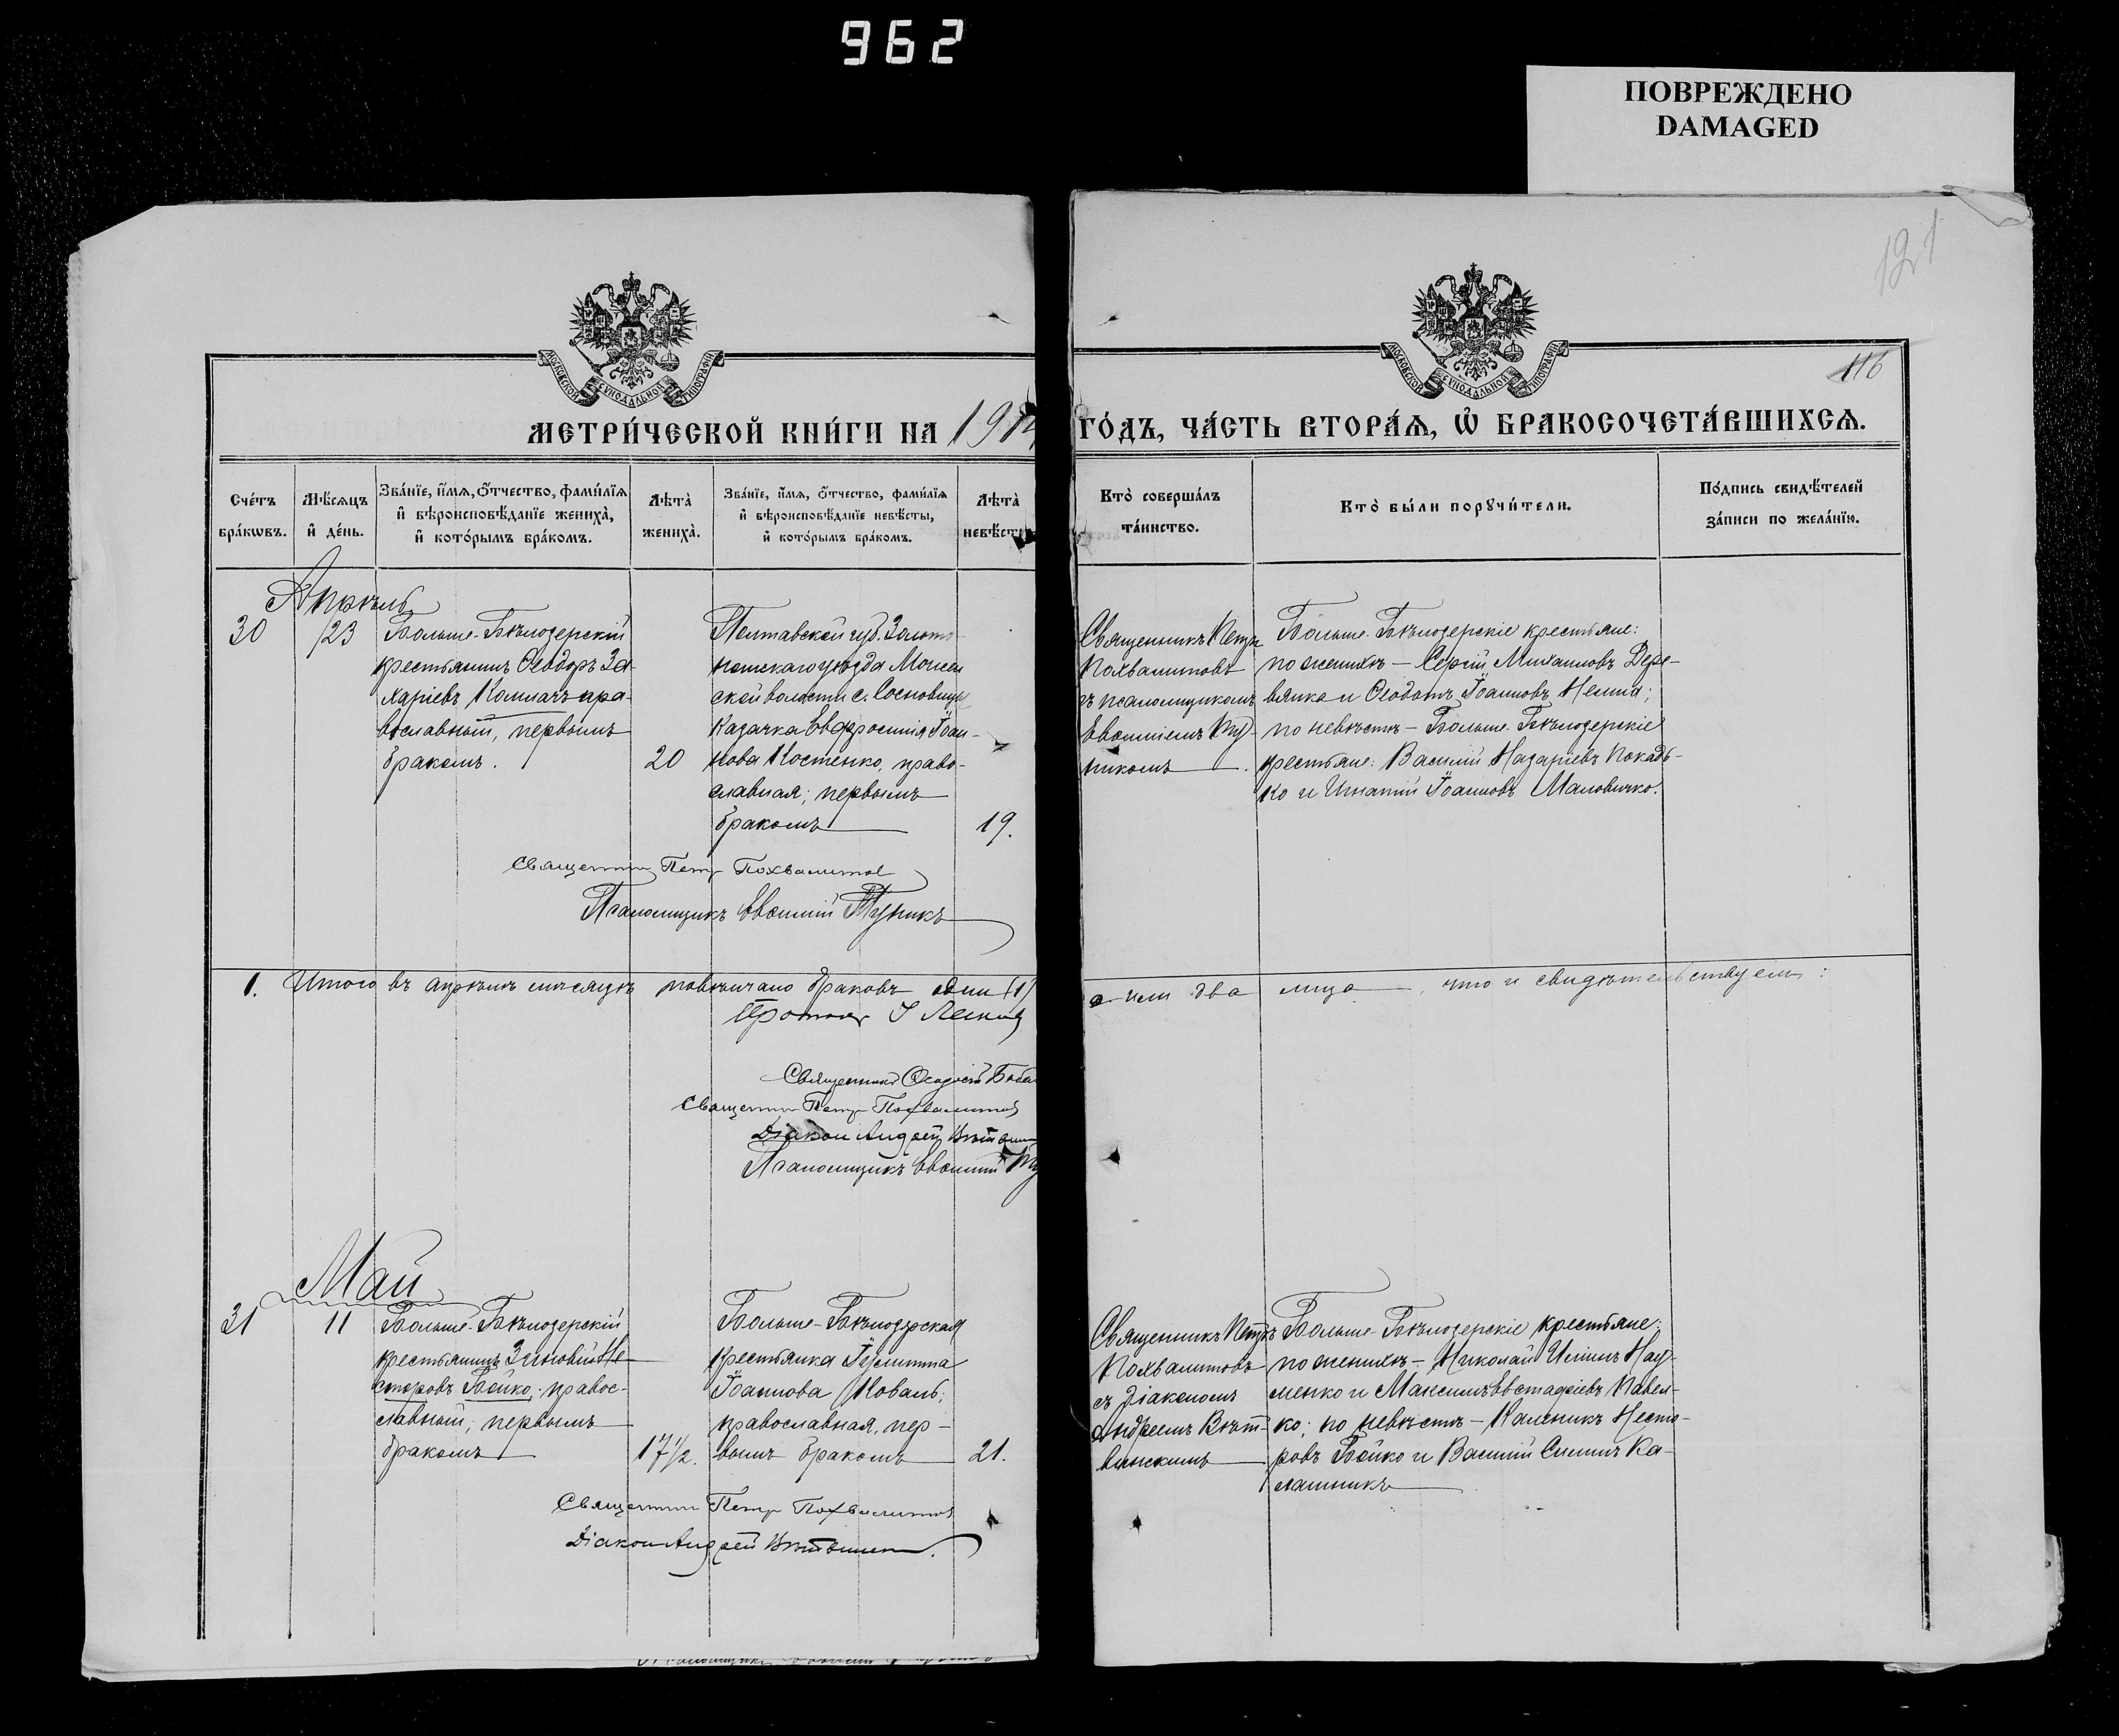 962
ПОВРЕЖДЕНО
DAMAGED
121
116
МОСКОВСКОЙ СѴНОДАЛЬНОЙ ТИПОГРАФІИ
МОСКОВСКОЙ СѴНОДАЛЬНОЙ ТИПОГРАФІИ
МЕТРИ́ЧЕСКОЙ КНИ́ГИ НА 1914
ГО́ДЪ, ЧА́СТЬ ВТОРА́Ѧ, Ѽ БРАКОСОЧЕТА́ВШИХСѦ.
Сче́тъ
бра́кѡвъ.
Мѣ́сѧцъ
и҆ де́нь.
Зва́нїе, и҆́мѧ, ѻ҆́тчество, фами́лїѧ
и҆ вѣроисповѣ́данїе жениха̀,
и҆ кото́рымъ бра́комъ.
Лѣ́та̀
жениха̀.
Зва́нїе, и҆́мѧ, ѻ҆́тчество, фами́лїѧ
и҆ вѣроисповѣ́данїе невѣ́сты,
и҆ кото́рымъ бра́комъ.
Лѣ́та̀
невѣ́сты
Кто̀ соверша́лъ
та́инство.
Кто̀ бы́ли порꙋчи́тели.
По́дпись свидѣ́телей
за́писи по жела́нїю.
Апрѣль
30
23
Больше-Бѣлозерскій
крестьянинъ Ѳеодоръ За-
харіевъ Коплачъ пра-
вославный, первымъ
бракомъ.
20
Полтавской губ. Золото-
ношскаго уѣзда Моисен
ской волости с. Сосновицы
казачка Евфросинія Іоан-
нова Костенко, право-
славная; первымъ
бракомъ
19.
Священникъ Петръ
Похвалитовъ
съ псаломщикомъ
Евѳиміемъ Пу-
никомъ.
Больше-Бѣлозерскіе крестьяне:
по женихѣ – Сергій Михаиловъ Дере-
вянко и Ѳеодотъ Іоанновъ Немша;
по невѣстѣ – Больше-Бѣлозерскіе
крестьяне: Василій Назаріевъ Покадь-
ко и Игнатій Іоанновъ Маловичко.
Священник Петр Похвалитов
Псаломщикъ Евѳимій Пуникъ
1. Итого въ апрѣлѣ мѣсяцѣ повѣнчано браковъ один (1)
а чел два лица, что и свидѣтельствуемъ:
Священникъ Ѳеодосій
Священник Петр Похвалитов
Діакон Андрей
Псаломщикъ Евѳимій
Май
31
11
Больше-Бѣлозерскій
крестьянинъ Зиновій Не-
сторовъ Бойко; правос-
лавный; первымъ
бракомъ
17½.
Больше-Бѣлозерская
крестьянка Іулитта
Іоаннова Коваль;
православная, пер-
вымъ бракомъ
21.
Священникъ Петръ
Похвалитовъ
съ діакономъ
Андреемъ Вѣт-
винскимъ
Больше-Бѣлозерскіе крестьяне:
по женихѣ – Николай Илiинъ Нау-
менко и Максимъ Евстафіевъ Павел-
ко; по невѣстѣ – Калленикъ Несто-
ровъ Бойко и Василій Симинъ Ка-
лашникъ
Священник Петр Похвалитов
Діакон Андрей